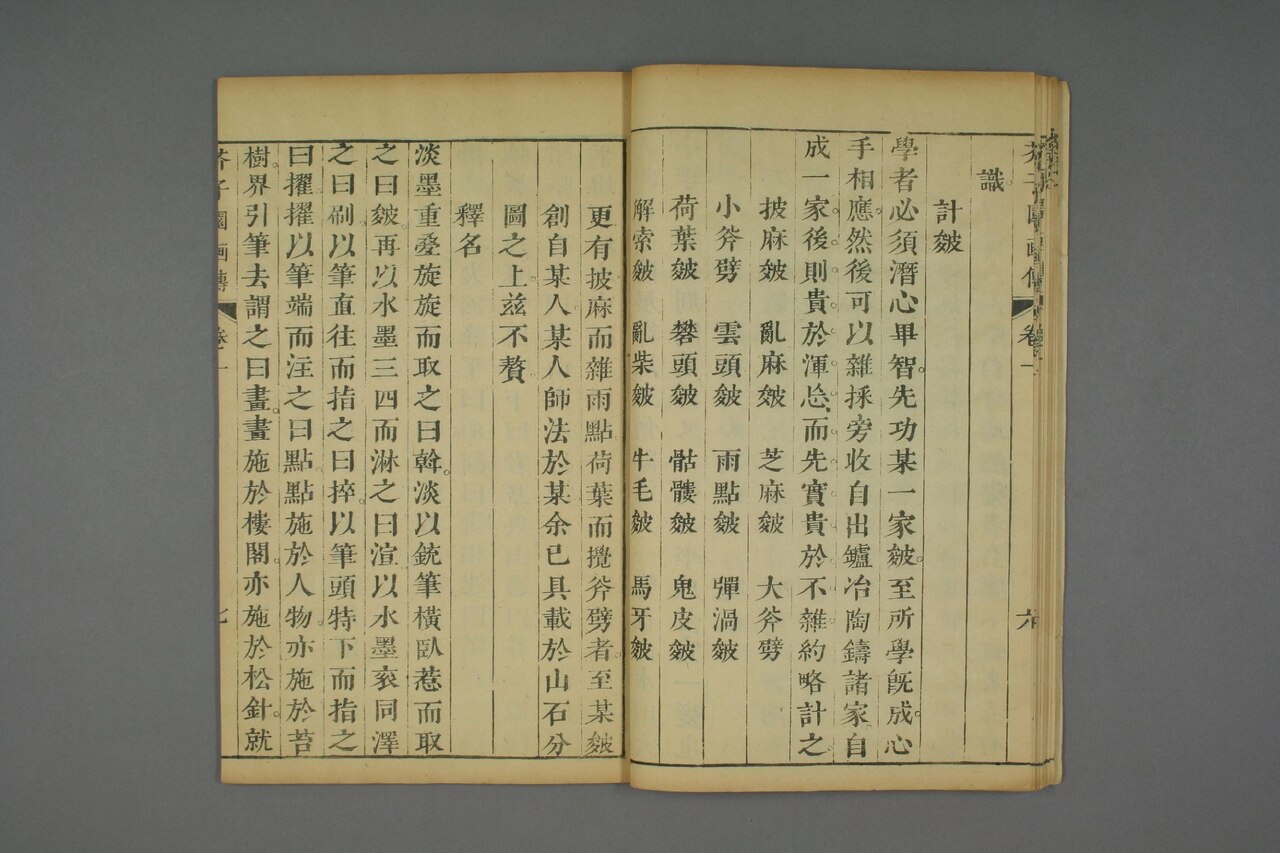 芥子園畫傳 卷一 六
識
計皴
學者必須潛心畢智先功某一家皴至所學旣成心
手相應然後可以雜採旁收自出鑪冶陶鑄諸家自
成一家後則貴於渾忘而先實貴於不雜約略計之
披麻皴 亂麻皴 芝麻皴 大斧劈
小斧劈 雲頭皴 雨點皴 彈渦皴
荷葉皴 礬頭皴 骷髏皴 鬼皮皴
解索皴 亂柴皴 牛毛皴 馬牙皴
更有披麻而雜雨點荷葉而攪斧劈者至某皴
創自某人某人師法於某余已具載於山石分
圖之上茲不贅
釋名
淡墨重疊旋旋而取之曰斡淡以銳筆橫臥惹而取
之曰皴再以水墨三四而淋之曰渲以水墨衮同澤
之曰刷以筆直往而指之曰捽以筆頭特下而指之
曰擢擢以筆端而注之曰點點施於人物亦施於苔
樹界引筆去謂之曰畫畫施於樓閣亦施於松針就
芥子園畫傳 卷一 七